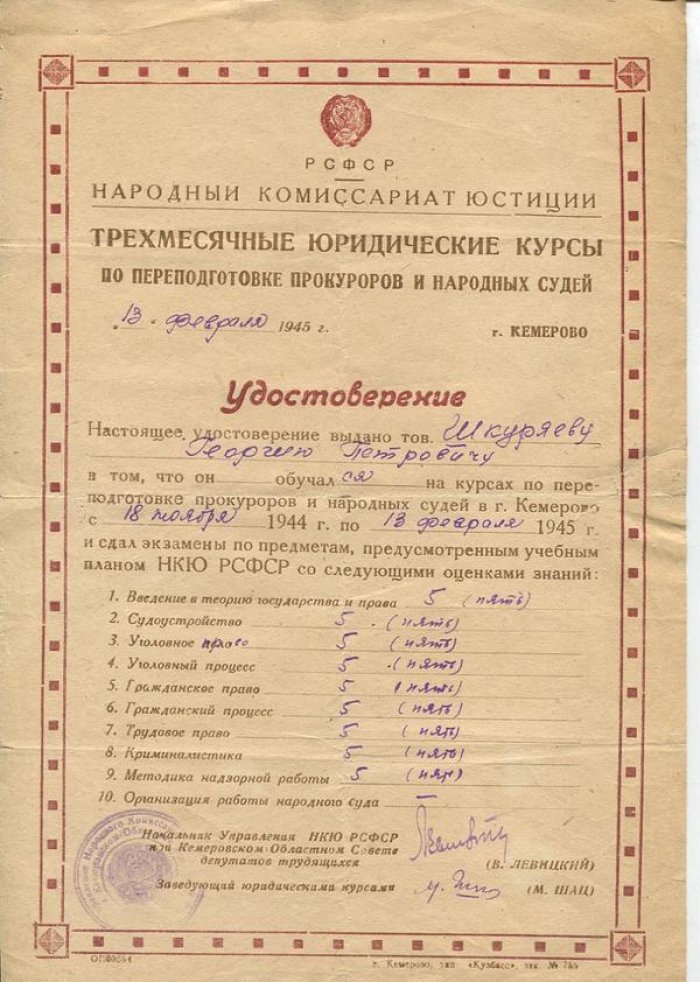 РСФСР
НАРОДНЫЙ КОМИССАРИАТ ЮСТИЦИИ
ТРЕХМЕСЯЧНЫЕ ЮРИДИЧЕСКИЕ КУРСЫ
ПО ПЕРЕПОДГОТОВКЕ ПРОКУРОРОВ И НАРОДНЫХ СУДЕЙ
„13“ февраля 1945 г. г. КЕМЕРОВО
Удостоверение
Настоящее удостоверение выдано тов. Шкуряеву
Георгию Петровичу
в том, что он обучался на курсах по пере-
подготовке прокуроров и народных судей в г. Кемерово
с 18 ноября 1944 г. по 13 февраля 1945 г.
и сдал экзамены по предметам, предусмотренным учебным
планом НКЮ РСФСР со следующими оценками знаний:
1. Введение в теорию государства и права 5 (пять)
2. Судоустройство 5 (пять)
3. Уголовное право 5 (пять)
4. Уголовный процесс 5 (пять)
5. Гражданское право 5 (пять)
6. Гражданский процесс 5 (пять)
7. Трудовое право 5 (пять)
8. Криминалистика 5 (пять)
9. Методика надзорной работы 5 (пять)
10. Организация работы народного суда —
Начальник Управления НКЮ РСФСР
при Кемеровском Областном Совете
депутатов трудящихся
(В. ЛЕВИЦКИЙ)
Заведующий юридическими курсами
(М. ШАЦ)
г. Кемерово, тип. «Кузбасс», зак. №